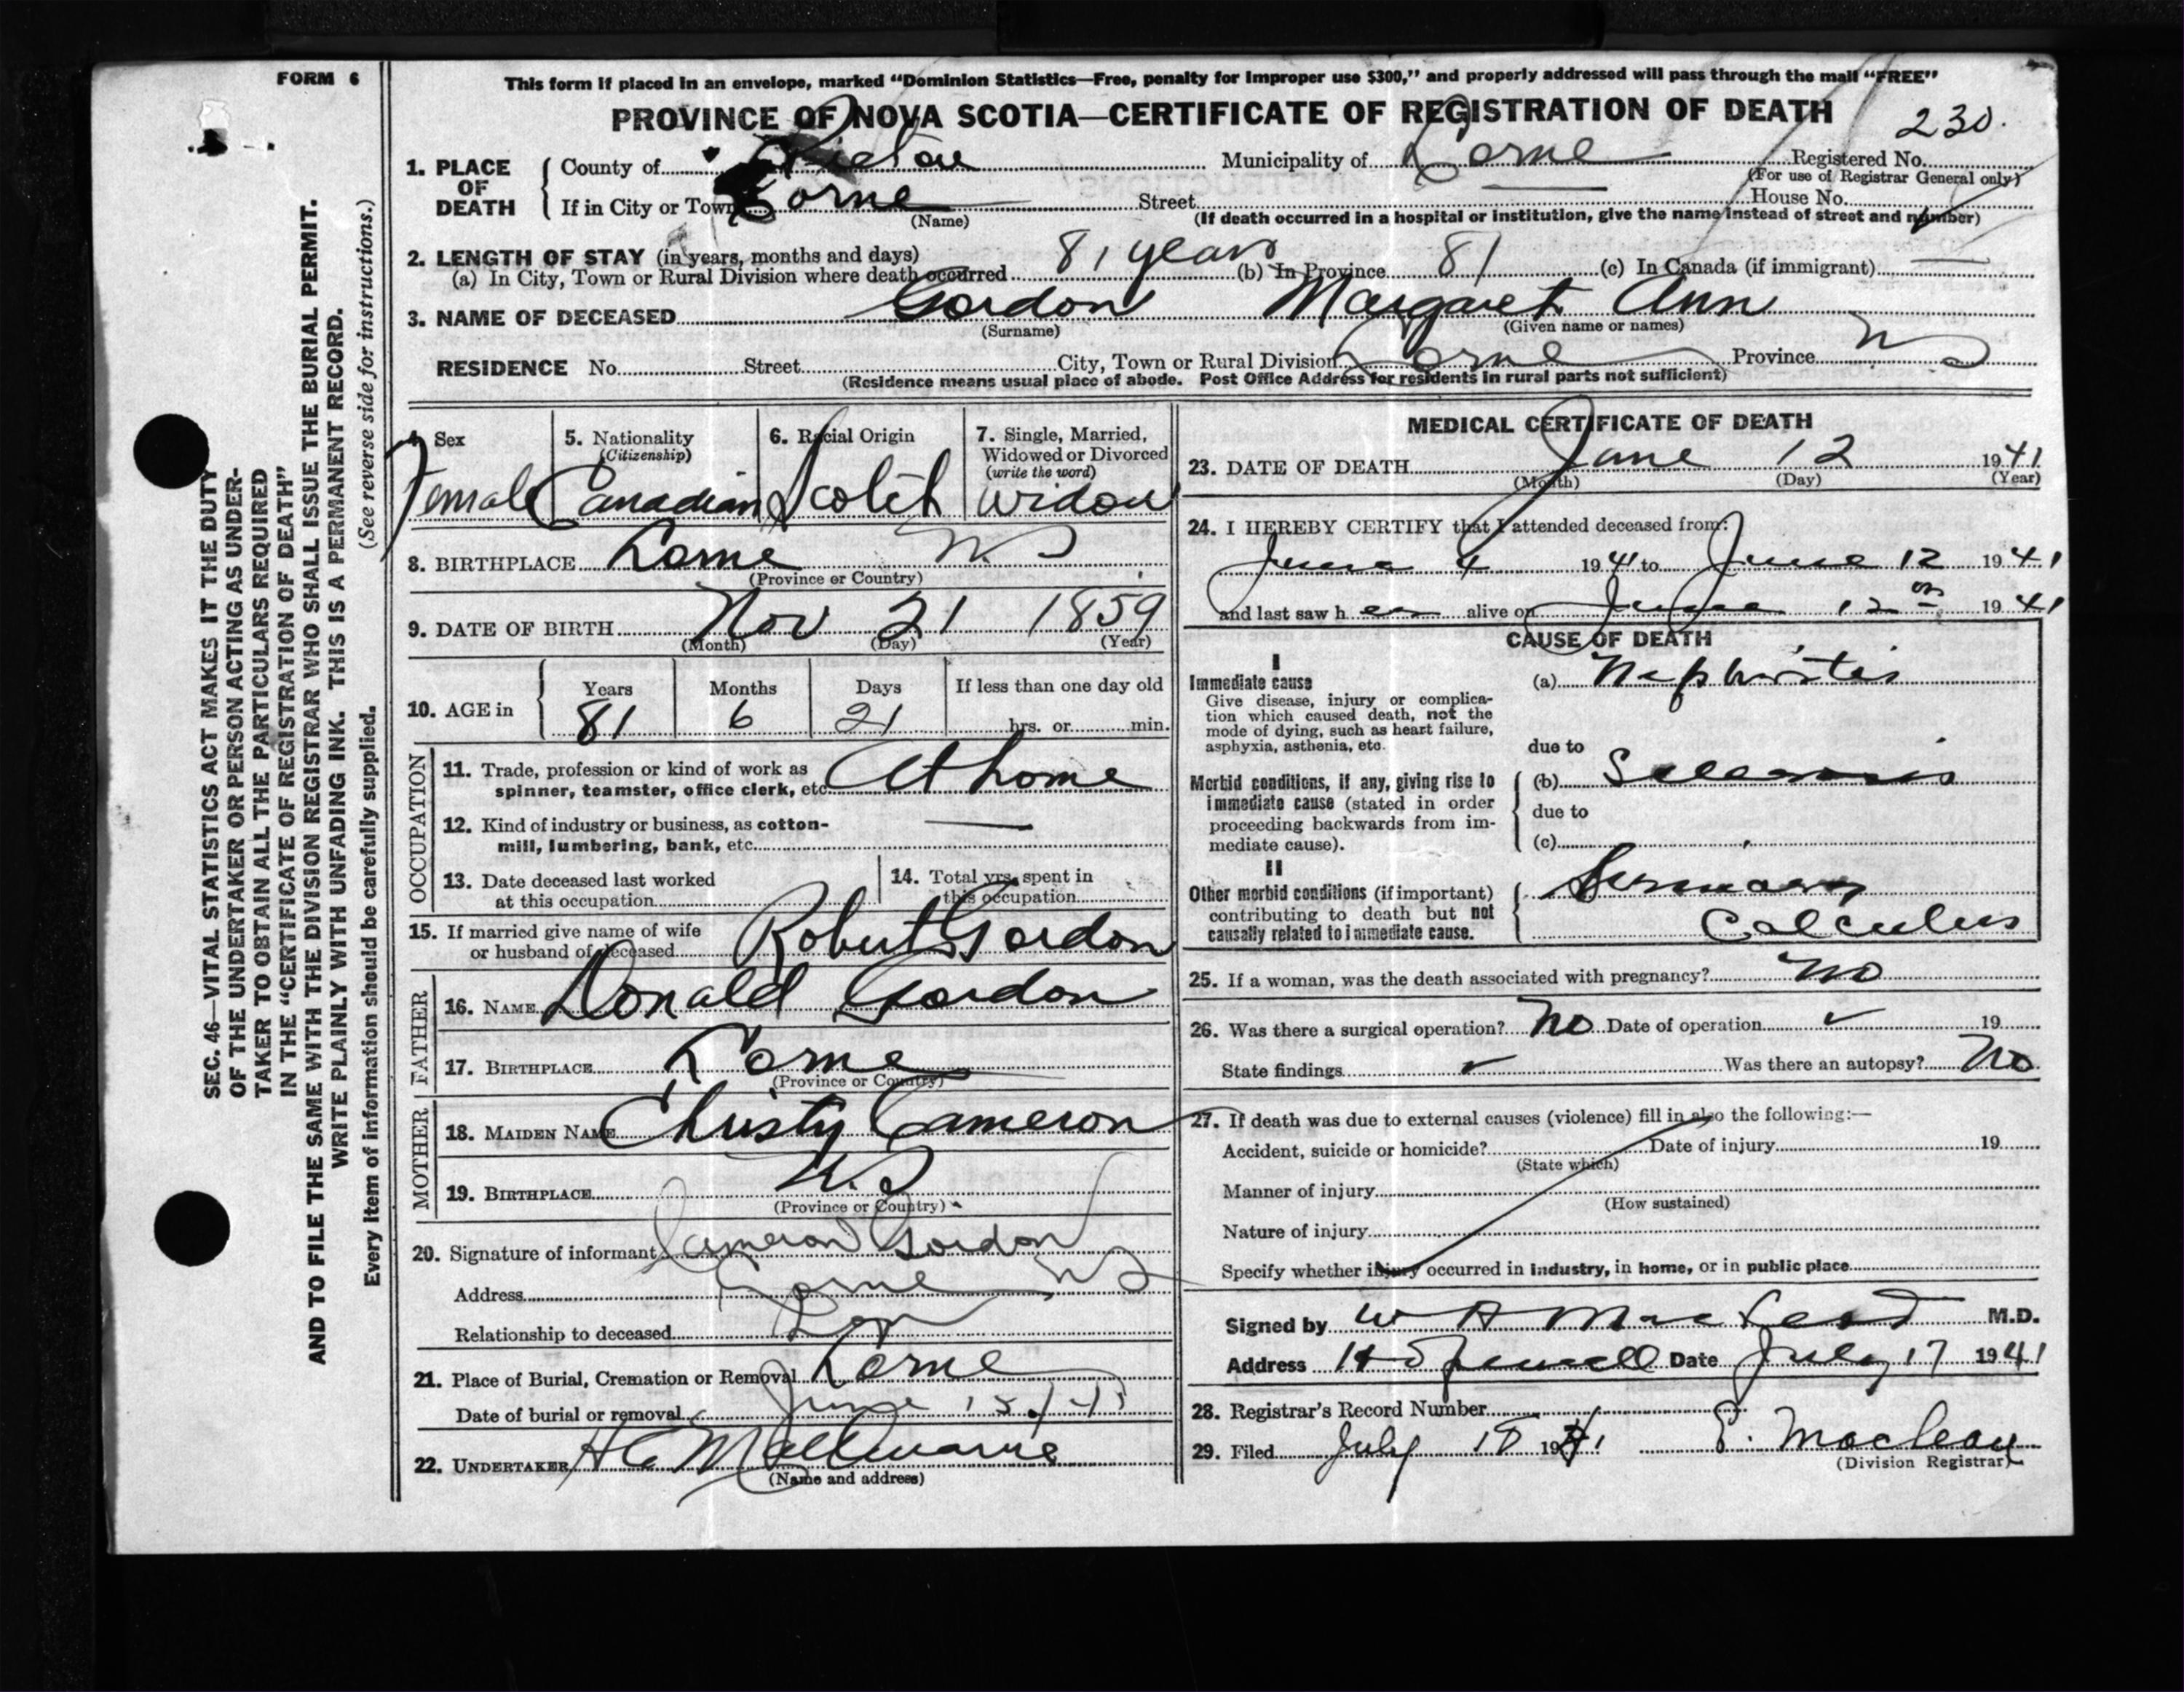 FORM 6
This form if placed in an envelope, marked "Dominion Statistics—Free, penalty for improper use $300," and properly addressed will pass through the mail "FREE"
PROVINCE OF NOVA SCOTIA—CERTIFICATE OF REGISTRATION OF DEATH
230.
1. PLACE OF DEATH
County of Pictou Municipality of Lorne Registered No.
(For use of Registrar General only)
If in City or Town Lorne Street House No.
(Name) (If death occurred in a hospital or institution, give the name instead of street and number)
2. LENGTH OF STAY (in years, months and days)
(a) In City, Town or Rural Division where death occurred 81 years (b) In Province 81 (c) In Canada (if immigrant)
3. NAME OF DECEASED Gordon Margaret Ann
(Surname) (Given name or names)
RESIDENCE No. Street City, Town or Rural Division Lorne Province NS
(Residence means usual place of abode. Post Office Address for residents in rural parts not sufficient)
4. Sex
Female
5. Nationality
(Citizenship)
Canadian
6. Racial Origin
Scotch
7. Single, Married,
Widowed or Divorced
(write the word)
Widow
8. BIRTHPLACE Lorne N.S
(Province or Country)
9. DATE OF BIRTH Nov 21 1859
(Month) (Day) (Year)
10. AGE in Years Months Days If less than one day old
81 6 21 hrs. or min.
OCCUPATION
11. Trade, profession or kind of work as
spinner, teamster, office clerk, etc. At home
12. Kind of industry or business, as cotton-
mill, lumbering, bank, etc. —
13. Date deceased last worked
at this occupation
14. Total yrs. spent in
this occupation
15. If married give name of wife
or husband of deceased Robert Gordon
FATHER
16. NAME Donald Gordon
17. BIRTHPLACE Lorne
(Province or Country)
MOTHER
18. MAIDEN NAME Christy Cameron
19. BIRTHPLACE N.S
(Province or Country)
20. Signature of informant Cameron Gordon
Address Lorne NS
Relationship to deceased Son
21. Place of Burial, Cremation or Removal Lorne
Date of burial or removal June 15
22. UNDERTAKER
(Name and address)
MEDICAL CERTIFICATE OF DEATH
23. DATE OF DEATH June 12 1941
(Month) (Day) (Year)
24. I HEREBY CERTIFY that I attended deceased from:
June 4 1941 to June 12 1941
and last saw her alive on June 12 1941
CAUSE OF DEATH
I
Immediate cause
Give disease, injury or complica-
tion which caused death, not the
mode of dying, such as heart failure,
asphyxia, asthenia, etc.
(a) Nephritis
due to
Morbid conditions, if any, giving rise to
immediate cause (stated in order
proceeding backwards from im-
mediate cause).
(b)
due to
(c)
II
Other morbid conditions (if important)
contributing to death but not
causally related to immediate cause.
Calculus
25. If a woman, was the death associated with pregnancy? No
26. Was there a surgical operation? No Date of operation 19
State findings Was there an autopsy? No
27. If death was due to external causes (violence) fill in also the following:—
Accident, suicide or homicide? Date of injury 19
(State which)
Manner of injury
(How sustained)
Nature of injury
Specify whether injury occurred in industry, in home, or in public place
Signed by W A MacLeod M.D.
Address Hopewell Date July 17 1941
28. Registrar's Record Number
29. Filed July 18 1941 E. MacLean
(Division Registrar)
SEC. 46—VITAL STATISTICS ACT MAKES IT THE DUTY
OF THE UNDERTAKER OR PERSON ACTING AS UNDER-
TAKER TO OBTAIN ALL THE PARTICULARS REQUIRED
IN THE "CERTIFICATE OF REGISTRATION OF DEATH"
AND TO FILE THE SAME WITH THE DIVISION REGISTRAR WHO SHALL ISSUE THE BURIAL PERMIT.
WRITE PLAINLY WITH UNFADING INK. THIS IS A PERMANENT RECORD.
Every item of information should be carefully supplied. (See reverse side for instructions.)